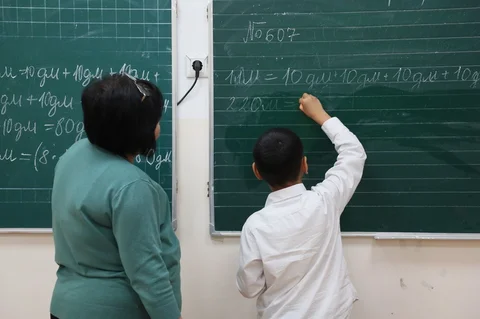 м=10дм+10дм+10дм+
дм+10дм
10дм=80д
м=(8
0дм
№607
=10дм+10дм+10дм+10д
220см=